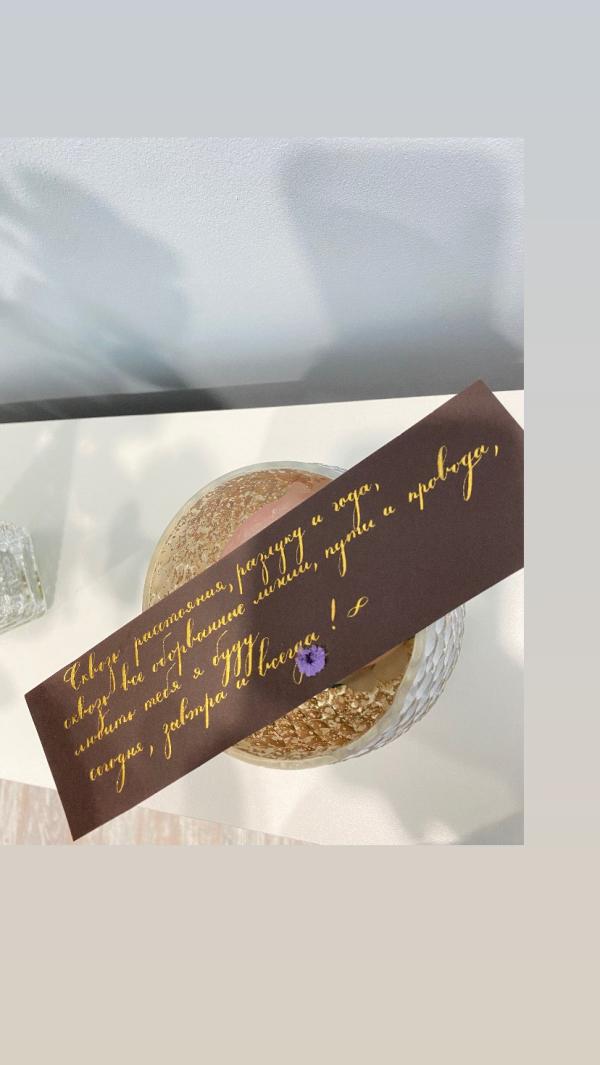 Сквозь расстояния, разлуку и года,
сквозь все оборванные линии, пути и провода,
любить тебя я буду
сегодня, завтра и всегда! ∞